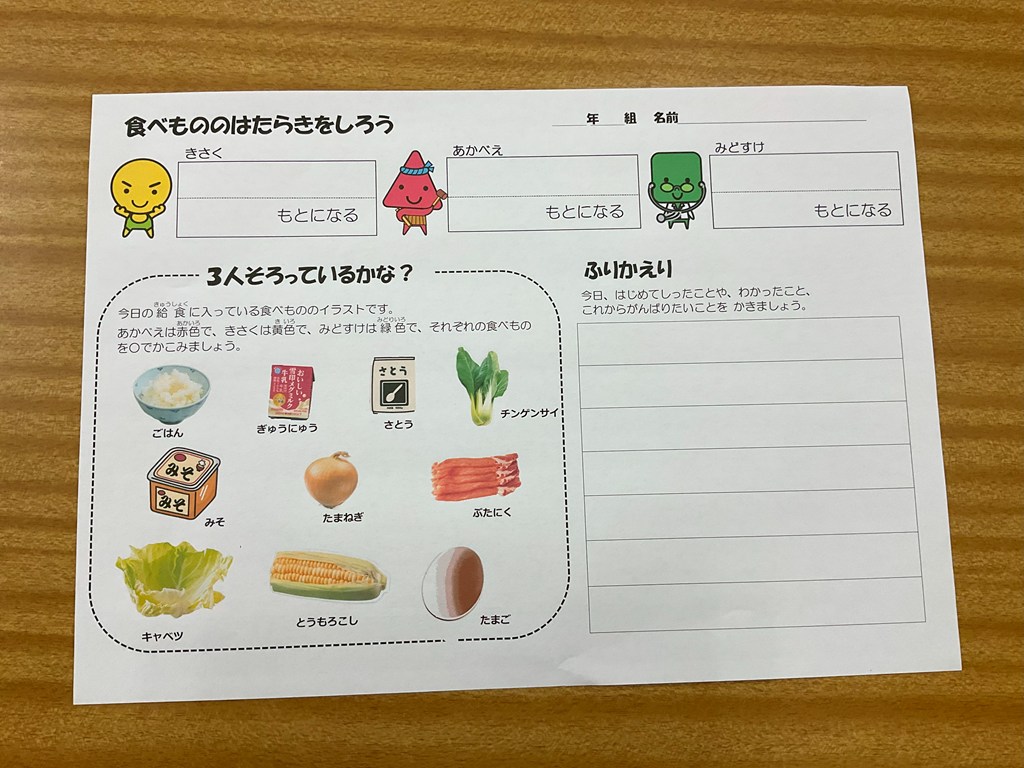 食べもののはたらきをしろう
年 組 名前
きさく
もとになる
あかべえ
もとになる
みどすけ
もとになる
3人そろっているかな?
今日の給食に入っている食べもののイラストです。
きゅうしょく
あかべえは赤色で、きさくは黄色で、みどすけは緑色で、それぞれの食べもの
あかいろ きいろ みどりいろ
を〇でかこみましょう。
ごはん
おいしい
雪印メグミルク
牛乳
ぎゅうにゅう
さとう
さとう
チンゲンサイ
みそ
みそ
みそ
たまねぎ
ぶたにく
キャベツ
とうもろこし
たまご
ふりかえり
今日、はじめてしったことや、わかったこと、
これからがんばりたいことを かきましょう。